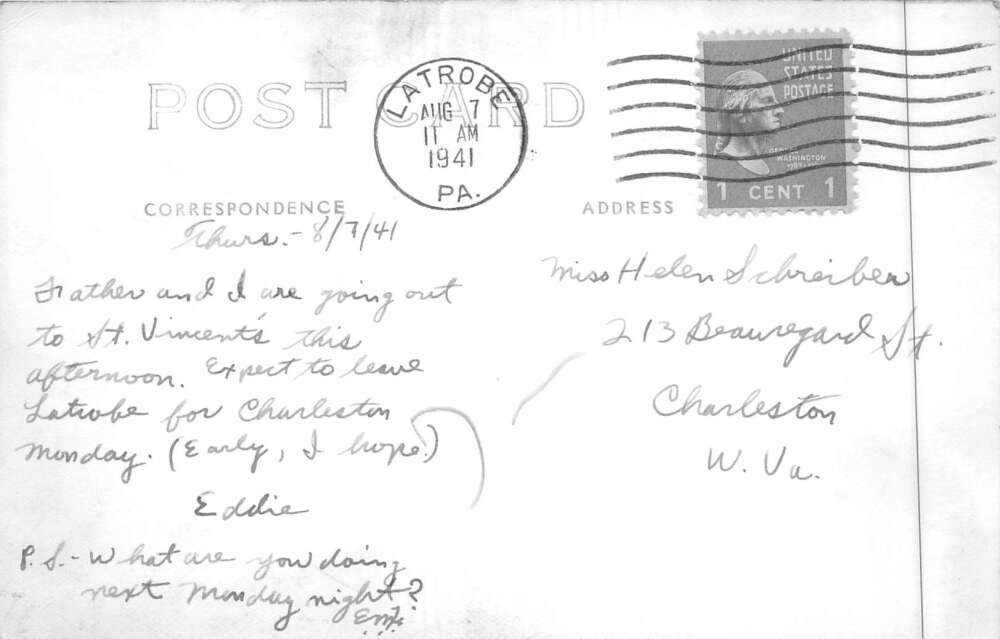 POST CARD
LATROBE
AUG 7
11 AM
1941
PA.
UNITED
STATES
POSTAGE
GEORGE
WASHINGTON
1 CENT 1
CORRESPONDENCE
ADDRESS
Thurs. - 8/7/41
Father and I are going out
to St. Vincent's this
afternoon. Expect to leave
Latrobe for Charleston
Monday. (Early, I hope!)
Eddie
P.S. - What are you doing
next Monday night?
Miss Helen Schreiber
213 Beauregard St.
Charleston
W. Va.